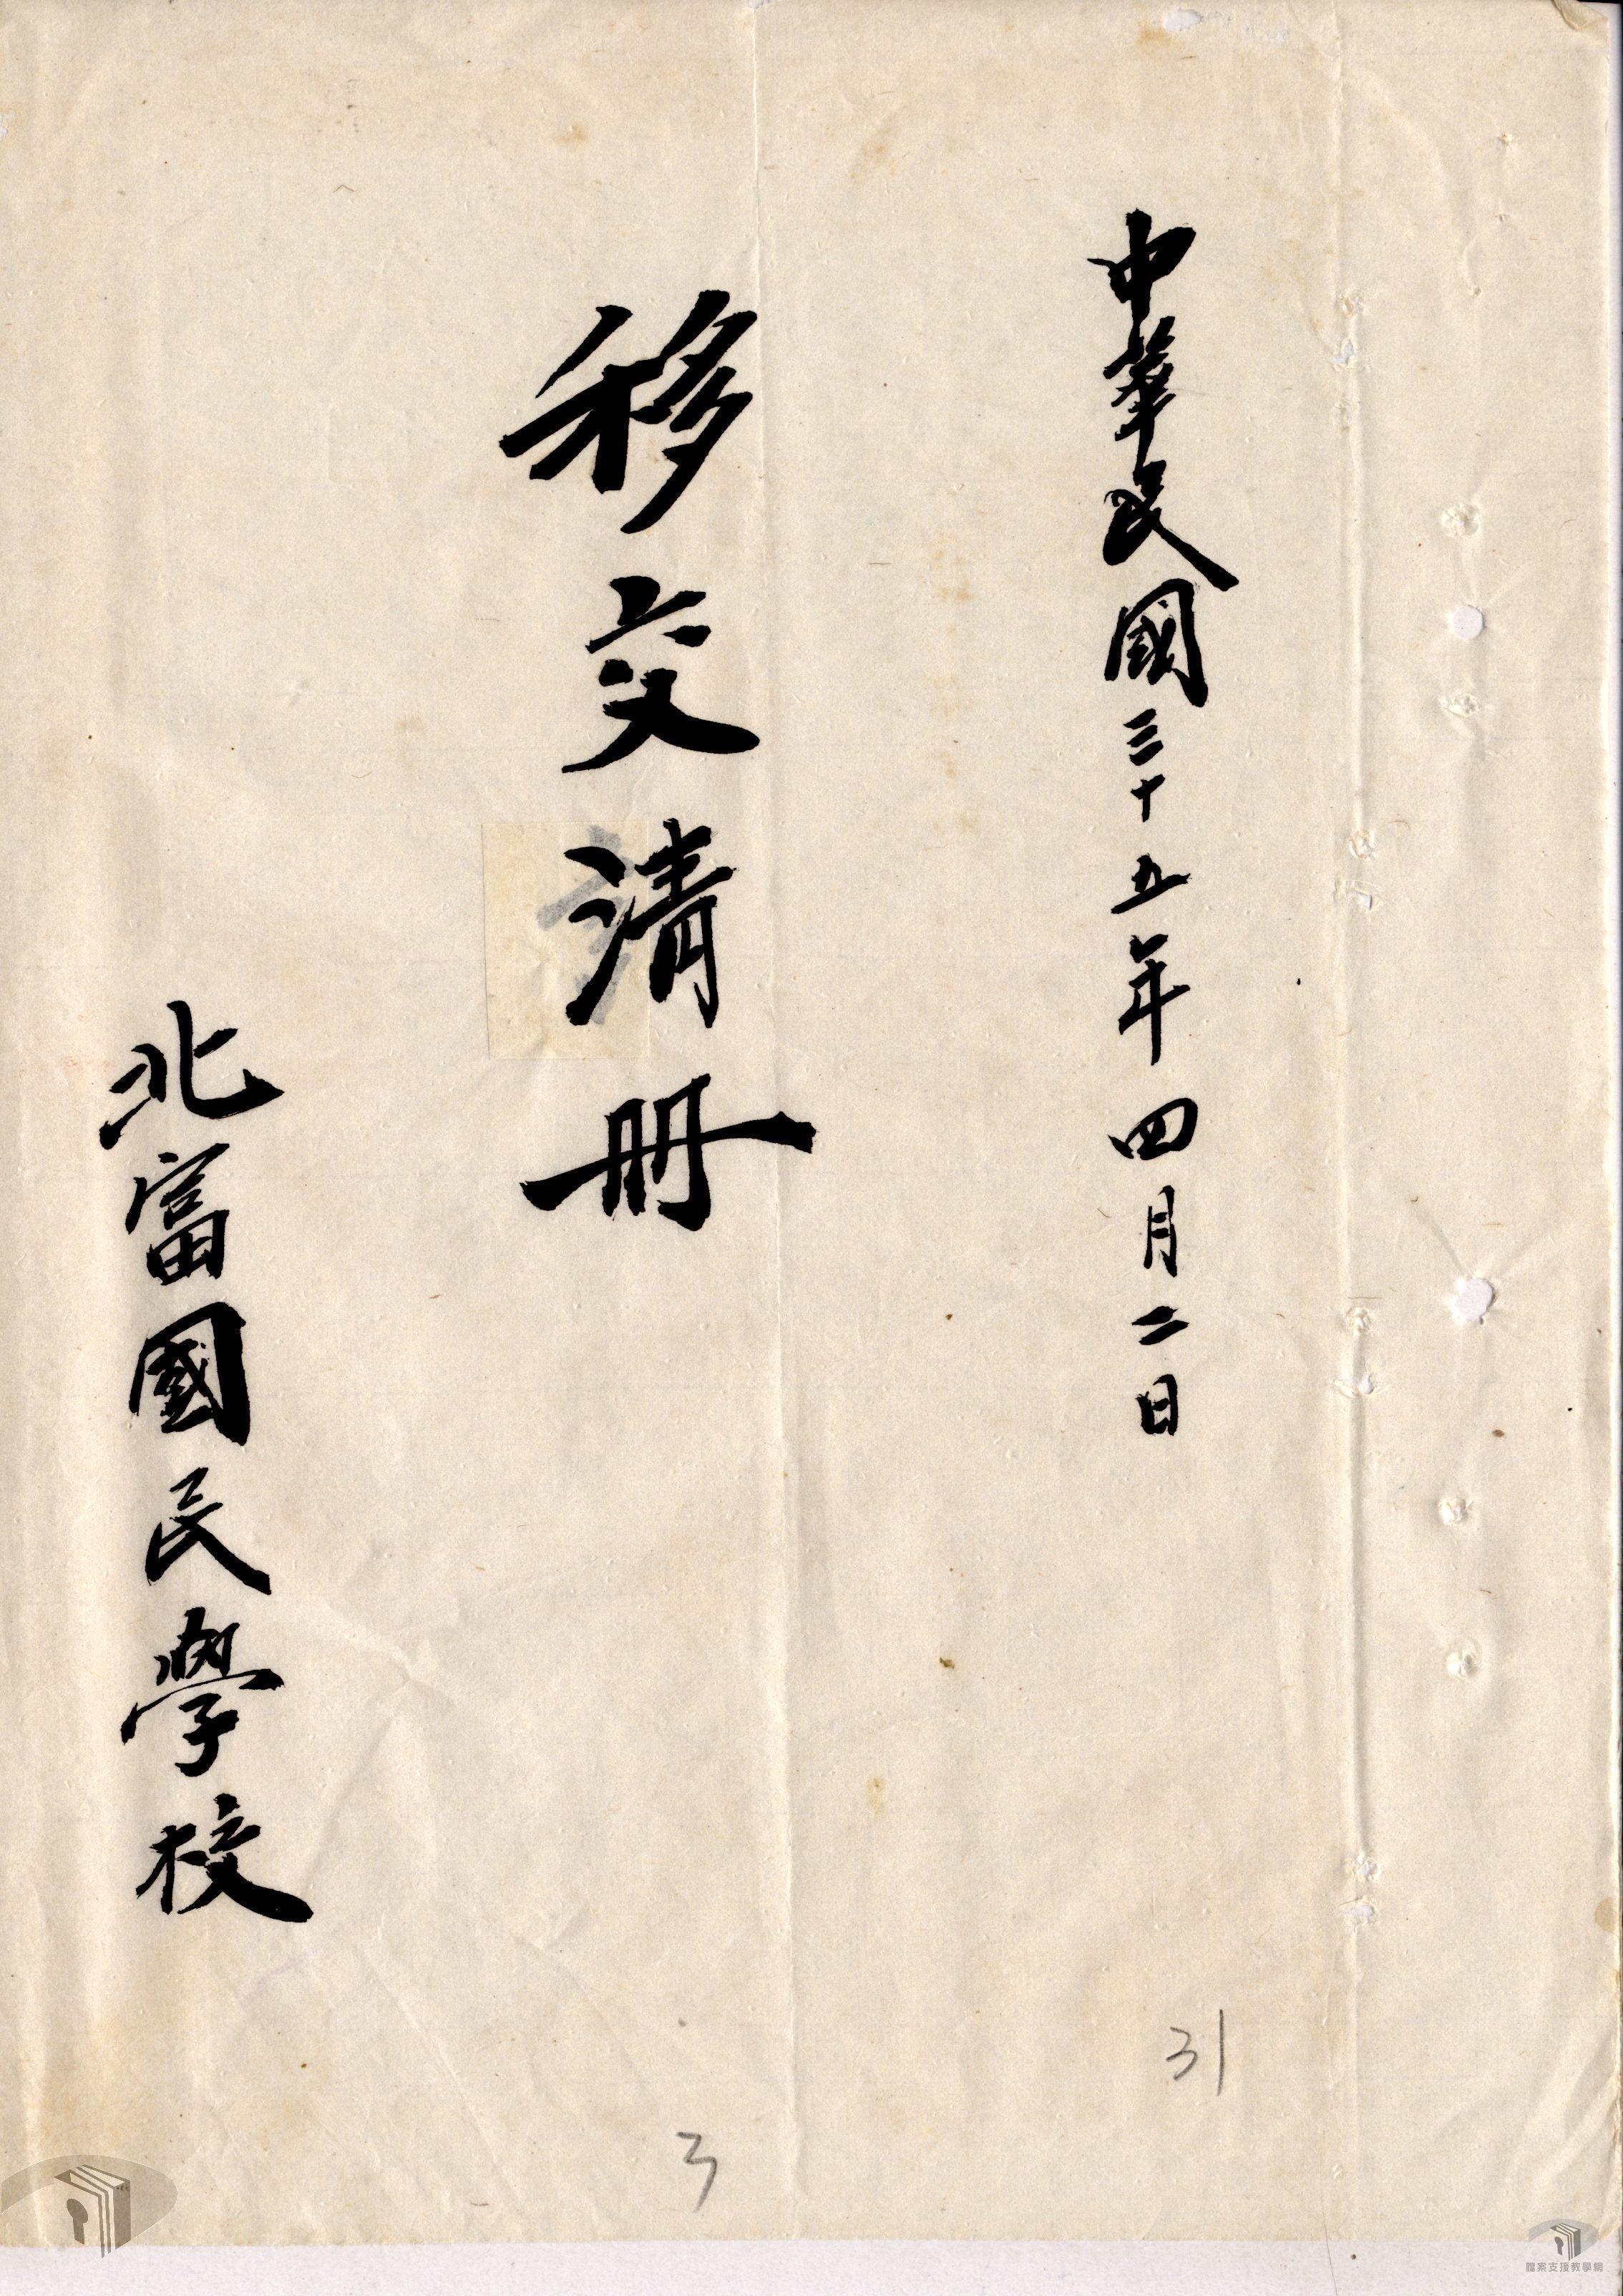 中華民國三十五年四月二日
移交清冊
北富國民學校
31
3
檔案支援教學網